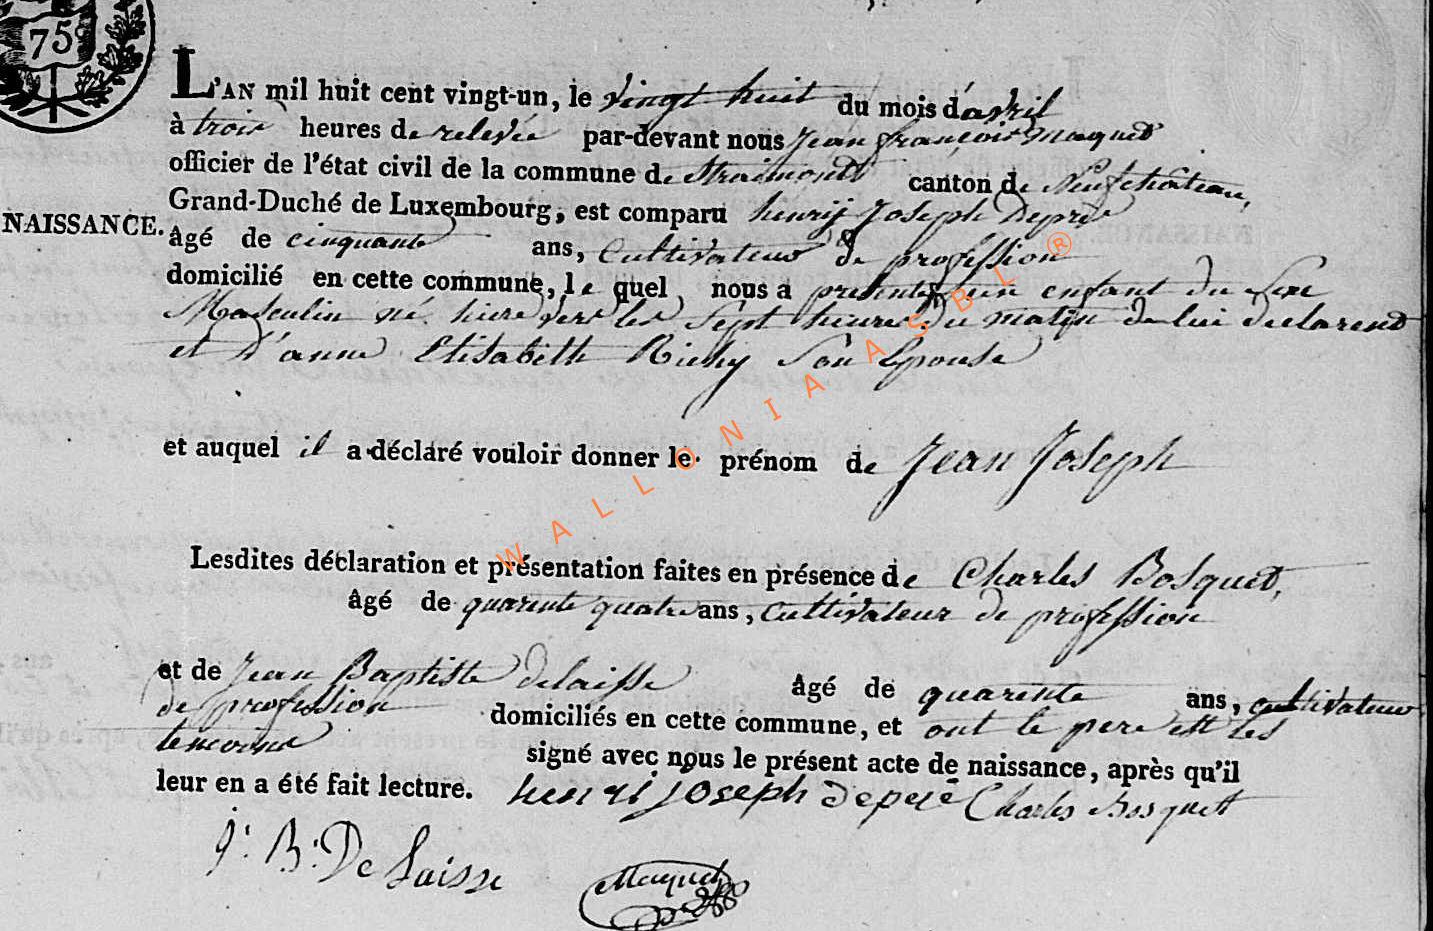 75
L'AN mil huit cent vingt-un, le vingt huit du mois d'avril
à trois heures de relevée par-devant nous Jean françois Maquet
officier de l'état civil de la commune de Straimont canton de Neufchâteau,
Grand-Duché de Luxembourg, est comparu henrij Joseph Deprè
NAISSANCE.
âgé de cinquante ans, Cultivateur de profession
domicilié en cette commune, le quel nous a presenté un enfant du Sexe
Masculin né hiere vers les Sept heures du matin de lui declarend
et d'anne Elisabeth Richy Son Epouse
et auquel il a déclaré vouloir donner le prénom de Jean Joseph
Lesdites déclaration et présentation faites en présence de Charles Bosquet,
âgé de quarente quatre ans, Cultivateur de profession
et de Jean Baptiste delaisse âgé de quarente ans, cultivateur
de profession domiciliés en cette commune, et ont le pere et les
signé avec nous le présent acte de naissance, après qu'il
leur en a été fait lecture. henri joseph depré Charles Bosquet
J. B. De Laisse Maquet
WALLONIA ASBL ®